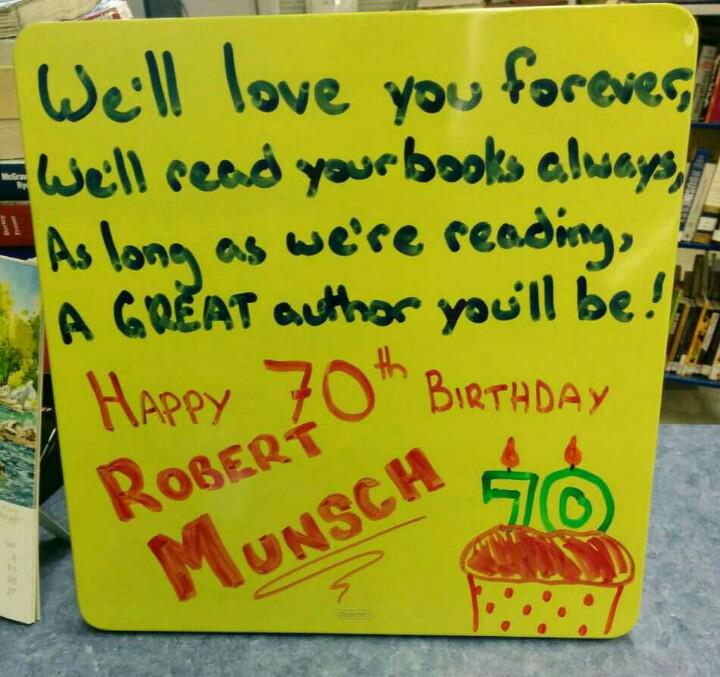 We'll love you forever,
We'll read your books always,
As long as we're reading,
A GREAT author you'll be!
HAPPY 70th BIRTHDAY
ROBERT
MUNSCH
70